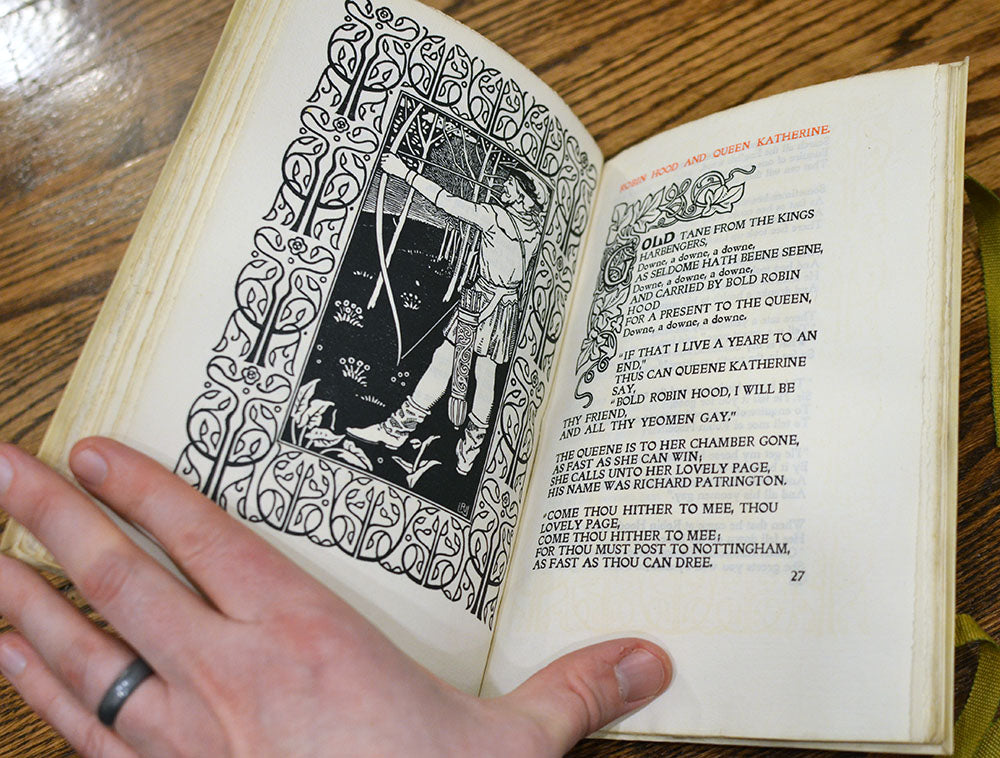 ROBIN HOOD AND QUEEN KATHERINE.
GOLD TANE FROM THE KINGS
HARBENGERS,
Downe, a downe, a downe,
AS SELDOME HATH BEENE SEENE,
Downe, a downe, a downe,
AND CARRIED BY BOLD ROBIN
HOOD
FOR A PRESENT TO THE QUEEN,
Downe, a downe, a downe.
"IF THAT I LIVE A YEARE TO AN
END,"
THUS CAN QUEENE KATHERINE
SAY,
"BOLD ROBIN HOOD, I WILL BE
THY FRIEND,
AND ALL THY YEOMEN GAY."
THE QUEENE IS TO HER CHAMBER GONE,
AS FAST AS SHE CAN WIN;
SHE CALLS UNTO HER LOVELY PAGE,
HIS NAME WAS RICHARD PATRINGTON.
"COME THOU HITHER TO MEE, THOU
LOVELY PAGE,
COME THOU HITHER TO MEE;
FOR THOU MUST POST TO NOTTINGHAM,
AS FAST AS THOU CAN DREE.
27